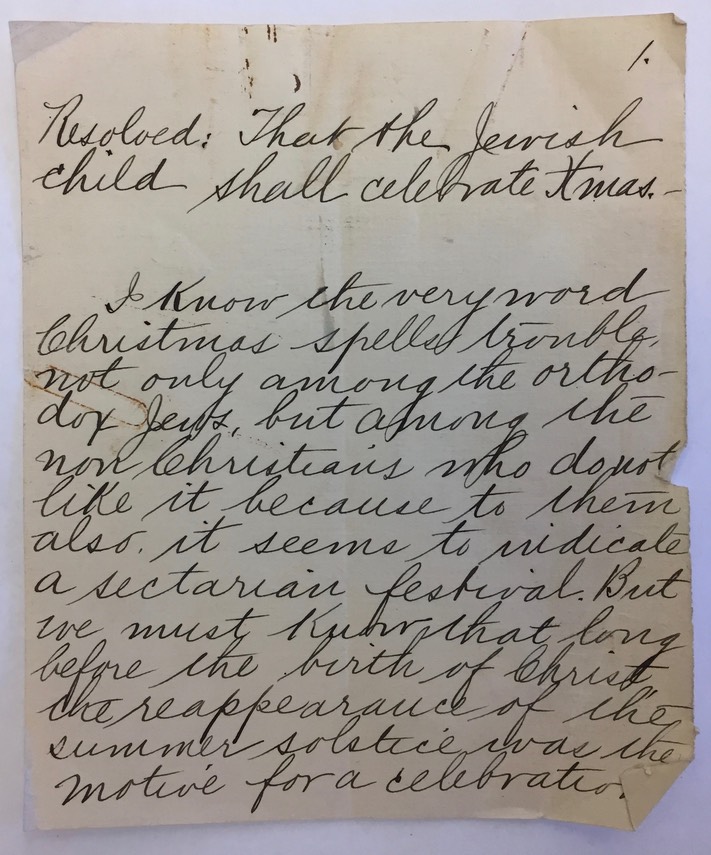 1.
Resolved: That the Jewish
child shall celebrate Xmas.—
I know the very word
Christmas spells trouble,
not only among the ortho-
dox Jews, but among the
non Christians who do not
like it because to them
also, it seems to indicate
a sectarian festival. But
we must know that long
before the birth of Christ
the reappearance of the
summer solstice was the
motive for a celebration.